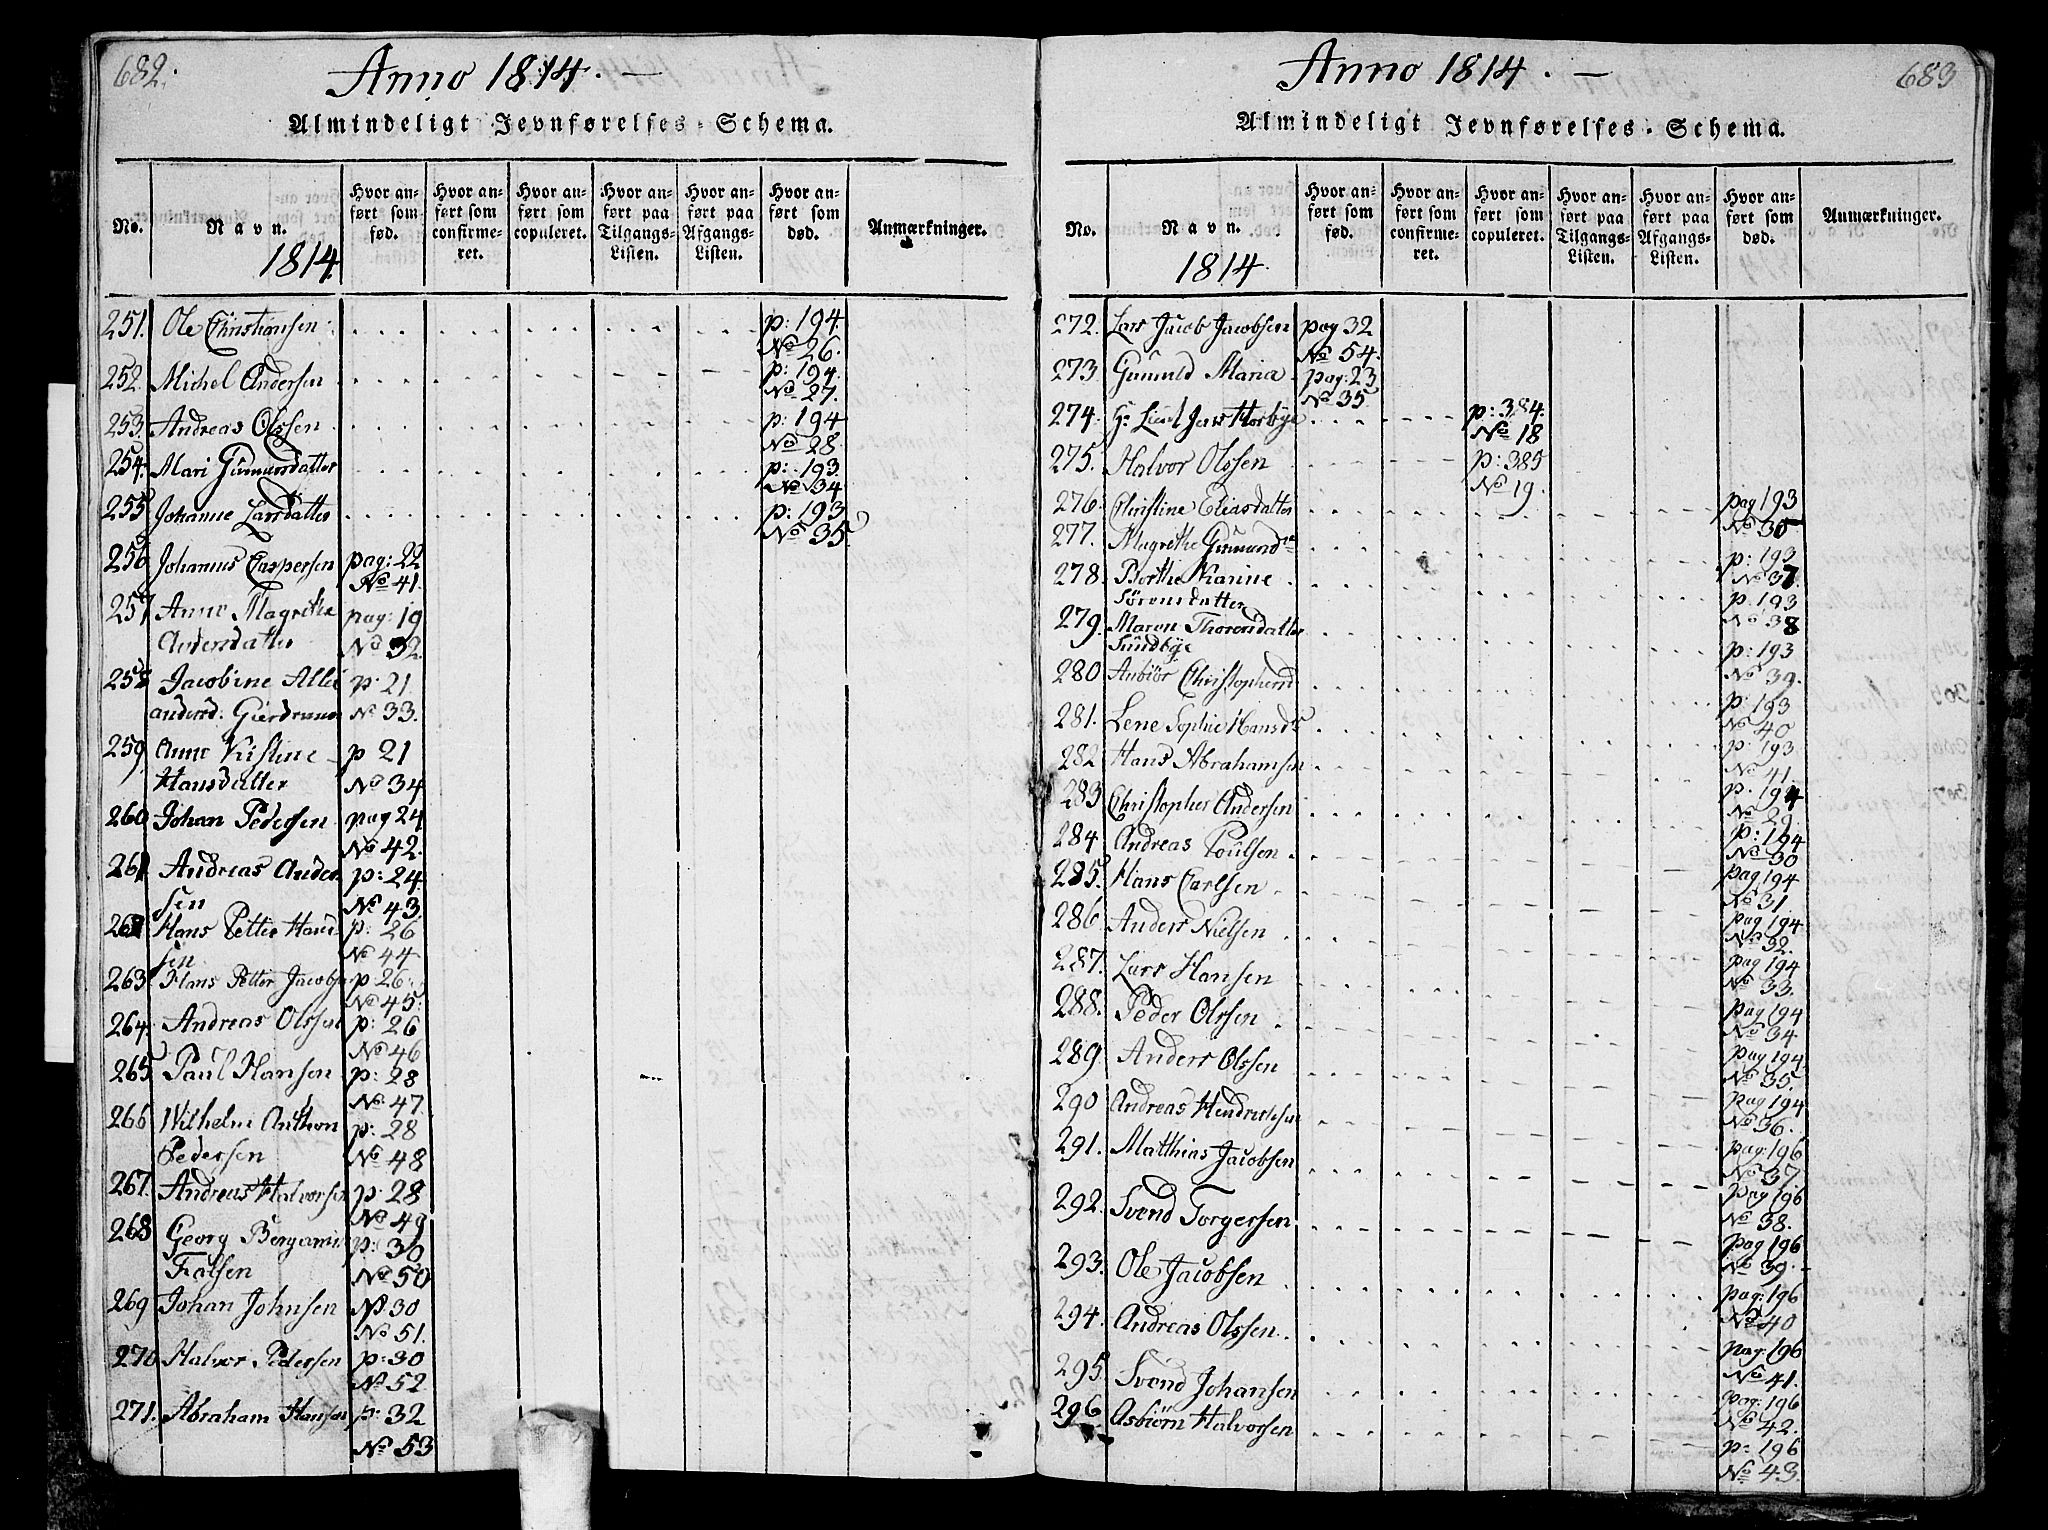 682.
Anno 1814. —
Almindeligt Jevnførelses-Schema.
No.
Navn.
1814
Hvor anført som fød.
Hvor anført som confirmeret.
Hvor anført som copuleret.
Hvor anført paa Tilgangs-Listen.
Hvor anført paa Afgangs-Listen.
Hvor anført som død.
Anmærkninger.
251. Ole Christiansen p: 194. No 26.
252. Michel Andersen p: 194. No 27.
253. Andreas Olssen p: 194 No 28.
254. Mari Gumundatter p: 193. No 34
255 Johanne Larsdatter p: 193 No 35.
256 Johannes Caspersen pag: 22 No 41.
257 Anne Magrethe pag: 19
Andersdatter No 32.
258 Jacobine Alle p: 21
andersd: No 33.
259 Anne Kistine p 21
Hansdatter No 34
260 Johan Pedersen pag 24 No 42.
261 Andreas Ander p: 24
sen No 43.
262 Hans Petter Hand p: 26
sen No 44
263 Hans Petter Jacobsen p 26. No 45.
264. Andreas Olssen p: 26 No 46
265 Paul Hansen p: 28 No 47.
266 Wilhelm Anthon p: 28
Pedersen No 48
267. Andreas Halvorsen p: 28 No 49
268 Georg Benjamin p: 30
Falsen No 50
269 Johan Johnsen No 30 No 51.
270 Halvor Pedersen p: 30 No 52
271. Abraham Hansen p: 32 No 53
683
Anno 1814. —
Almindeligt Jevnførelses-Schema.
No.
Navn.
1814.
Hvor anført som fød.
Hvor anført som confirmeret.
Hvor anført som copuleret.
Hvor anført paa Tilgangs-Listen.
Hvor anført paa Afgangs-Listen.
Hvor anført som død.
Anmærkninger.
272. Lars Jacob Jacobsen pag 32 No 54.
273 Gunnild Maria pag: 23 No 35.
274. Hr Lieut Jens p: 384. No 18
275. Halvor Olssen p: 385 No 19.
276. Christine Eliasdatter pag 193 No 36
277. Magrethe Gumundr p: 193 No 37
278. Berthe Karine p. 193
Sörensdatter No 38
279. Maren Thorersdatter p: 193
Sundbye No 39.
280 Anbiör Christophersd p: 193 No 40
281. Lene Sophie Hansdr p: 193 No 41.
282 Hans Abrahamsen p. 194 No 29.
283 Christopher Andersen p: 194 No 30
284 Andreas Poulsen pag 194 No 31.
285. Hans Carlsen pag 194 No 32.
286 Anders Nielsen pag 194 No 33.
287. Lars Hansen pag 194 No 34
288. Peder Olssen pag 194. No 35.
289. Anders Olssen pag 194 No 36.
290 Andreas Hendrichsen pag: 196 No 37.
291. Matthias Jacobsen pag 196 No 38.
292. Svend Torgersen pag 196 No 39.
293. Ole Jacobsen pag: 196 No 40
294. Andreas Olssen. pag: 196 No 41.
295. Svend Johansen pag: 196 No 42.
296 Asbiörn Halvorsen p: 196 No 43.